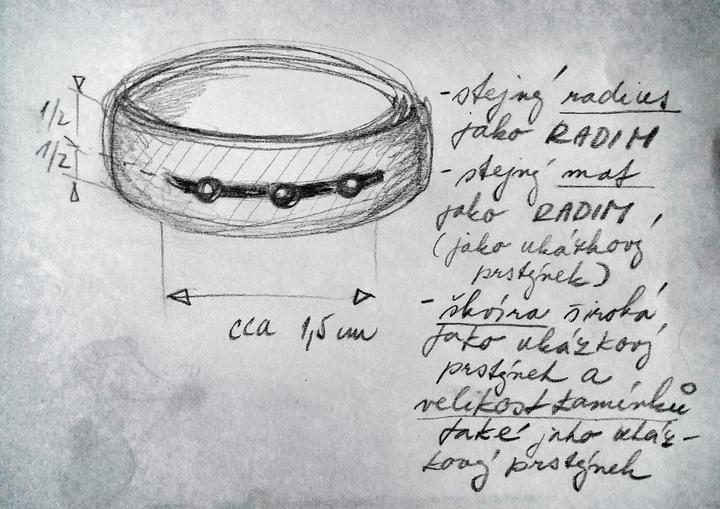 1/2
1/2
cca 1,5 cm
- stejný radius
jako RADIM
- stejný mat
jako RADIM,
(jako ukázkový
prstýnek)
- škvíra široká
jako ukázkový
prstýnek a
velikost kamínků
také jako ukáz-
kový prstýnek